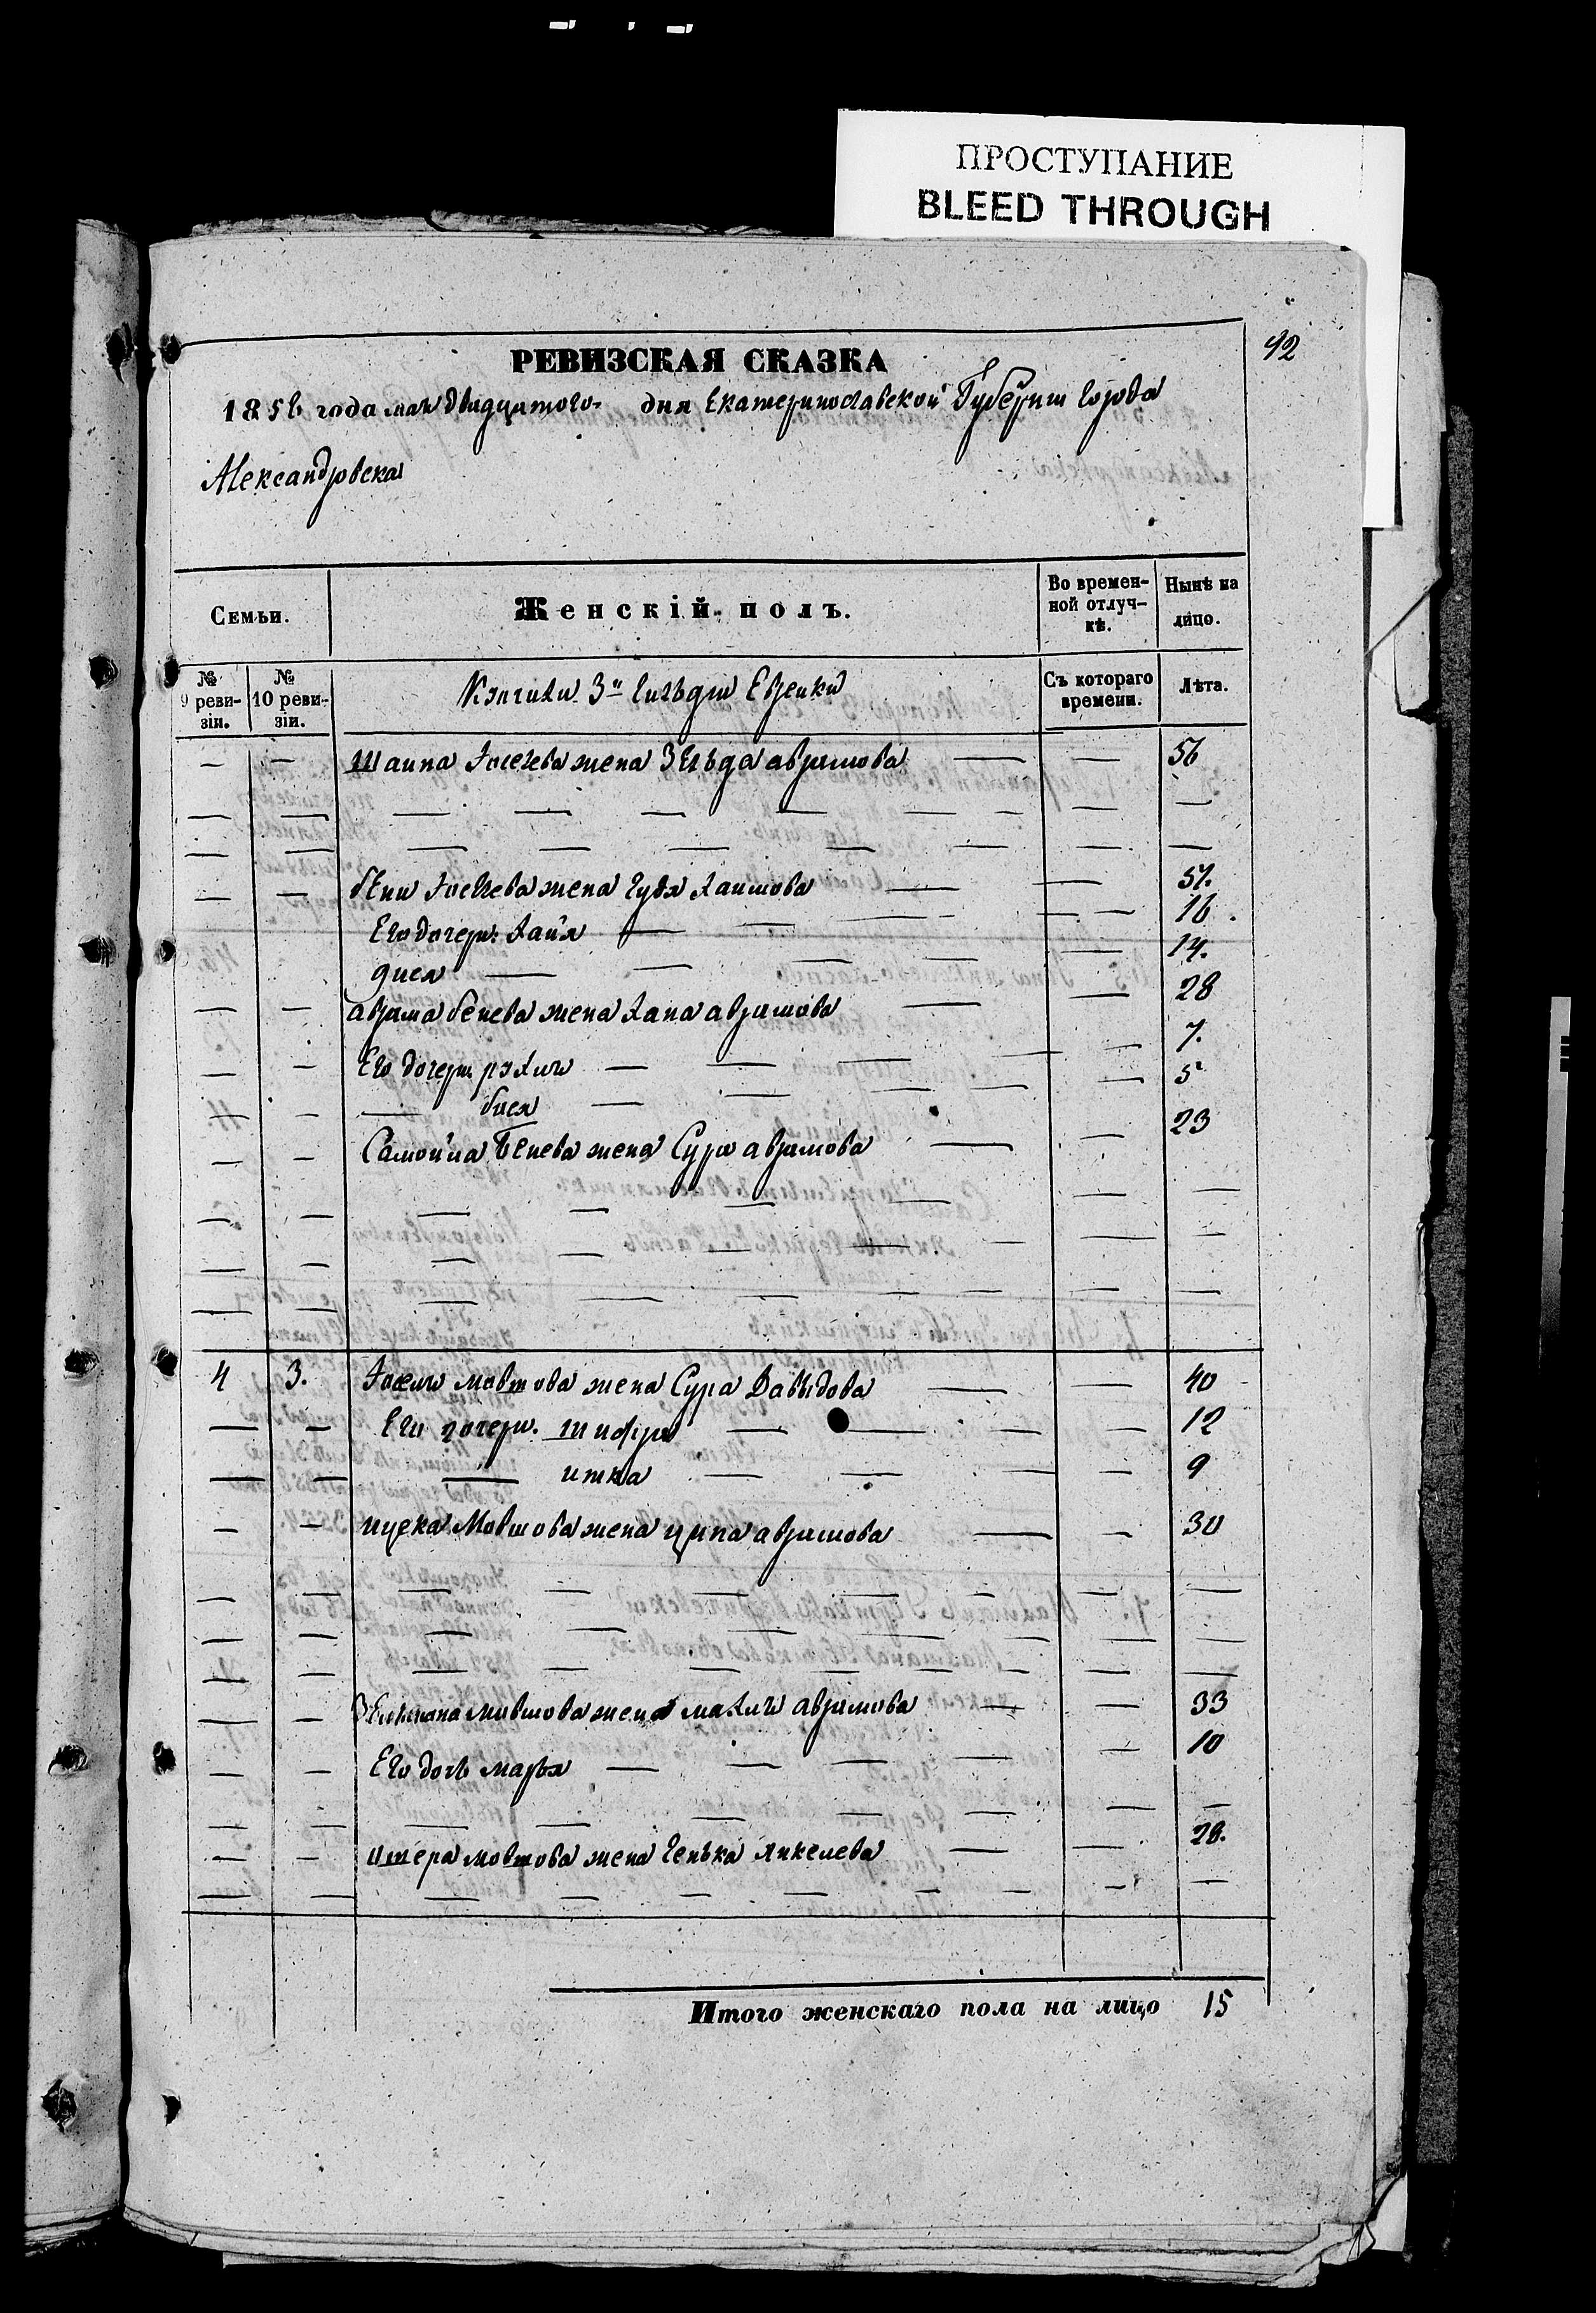 ПРОСТУПАНИЕ
BLEED THROUGH
92
РЕВИЗСКАЯ СКАЗКА
1856 года мая двадцатого дня Екатеринославской Губерніи города
Александровска
Семьи.
Женскій полъ.
Во времен-
ной отлуч-
кѣ.
Нынѣ на
лицо.
№
9 реви-
зіи.
№
10 реви-
зіи.
3й гильдіи Евреики
Съ котораго
времени.
Лѣта.
— — Шаина Іосева жена Зельда аврамова — — 56
— — бени Іосева жена гудя хаимова — — 57.
Его дочери. хаия — — 16.
дися — — 14.
— — аврама бенева жена хана аврамова — — 28
— — Его дочери рэхля — — 7.
— — бися — — 5
— — Самойла бенева жена Сура аврамова — — 23
4 3. Іосели мовшова жена Сура Давыдова — — 40
— — Его дочери. шифра — — 12
— — итка — — 9
— — ицека Мовшова жена ципа аврамова — — 30
— — Зельмана мовшова жена махля аврамова — — 33
— — Его дочь марья — — 10
— — мовшова жена генька янкелева — — 28.
Итого женскаго пола на лицо 15